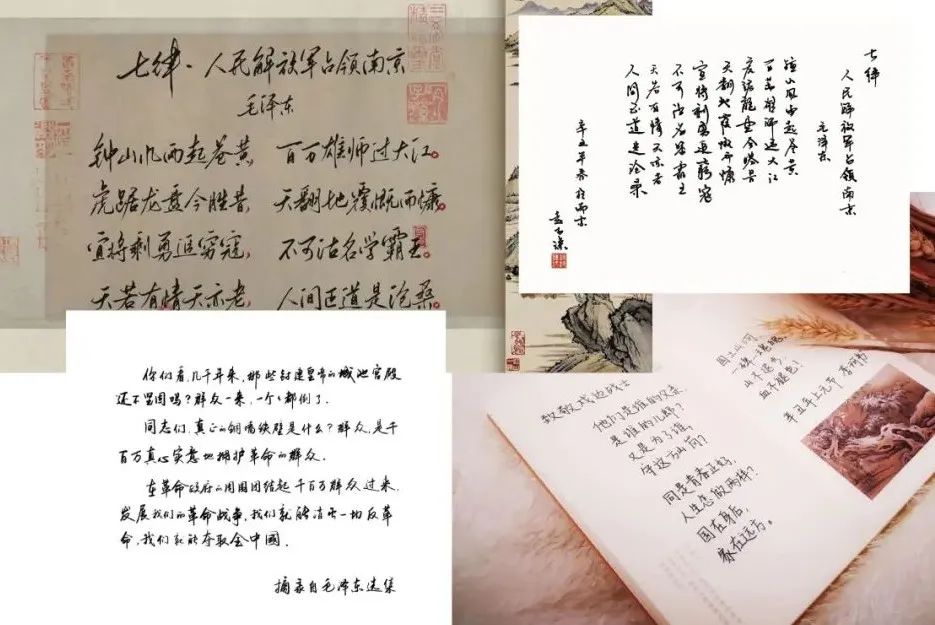 七律·人民解放军占领南京
毛泽东
钟山风雨起苍黄，百万雄师过大江。
虎踞龙盘今胜昔，天翻地覆慨而慷。
宜将剩勇追穷寇，不可沽名学霸王。
天若有情天亦老，人间正道是沧桑。
七律
人民解放军占领南京
毛泽东
钟山风雨起苍黄
百万雄师过大江
虎踞龙盘今胜昔
天翻地覆慨而慷
宜将剩勇追穷寇
不可沽名学霸王
天若有情天亦老
人间正道是沧桑
辛丑年春於南京
你们看，几千年来，那些封建皇帝的城池宫殿
还不坚固吗？群众一来，一个个都倒了。
同志们，真正的铜墙铁壁是什么？群众，是千
百万真心实意地拥护革命的群众。
在革命政府的周围团结起千百万群众过来，
发展我们的革命战争，我们就能消灭一切反革
命，我们就能夺取全中國。
摘录自毛泽东选集
致敬戍边战士
他们是谁的父亲，
是谁的儿郎？
又是为了谁，
守这方山岗？
同是青春正好，
人生怎两样？
国在身后，
家在远方。
国土山河
山不退
血不褪色！
辛丑年上元节